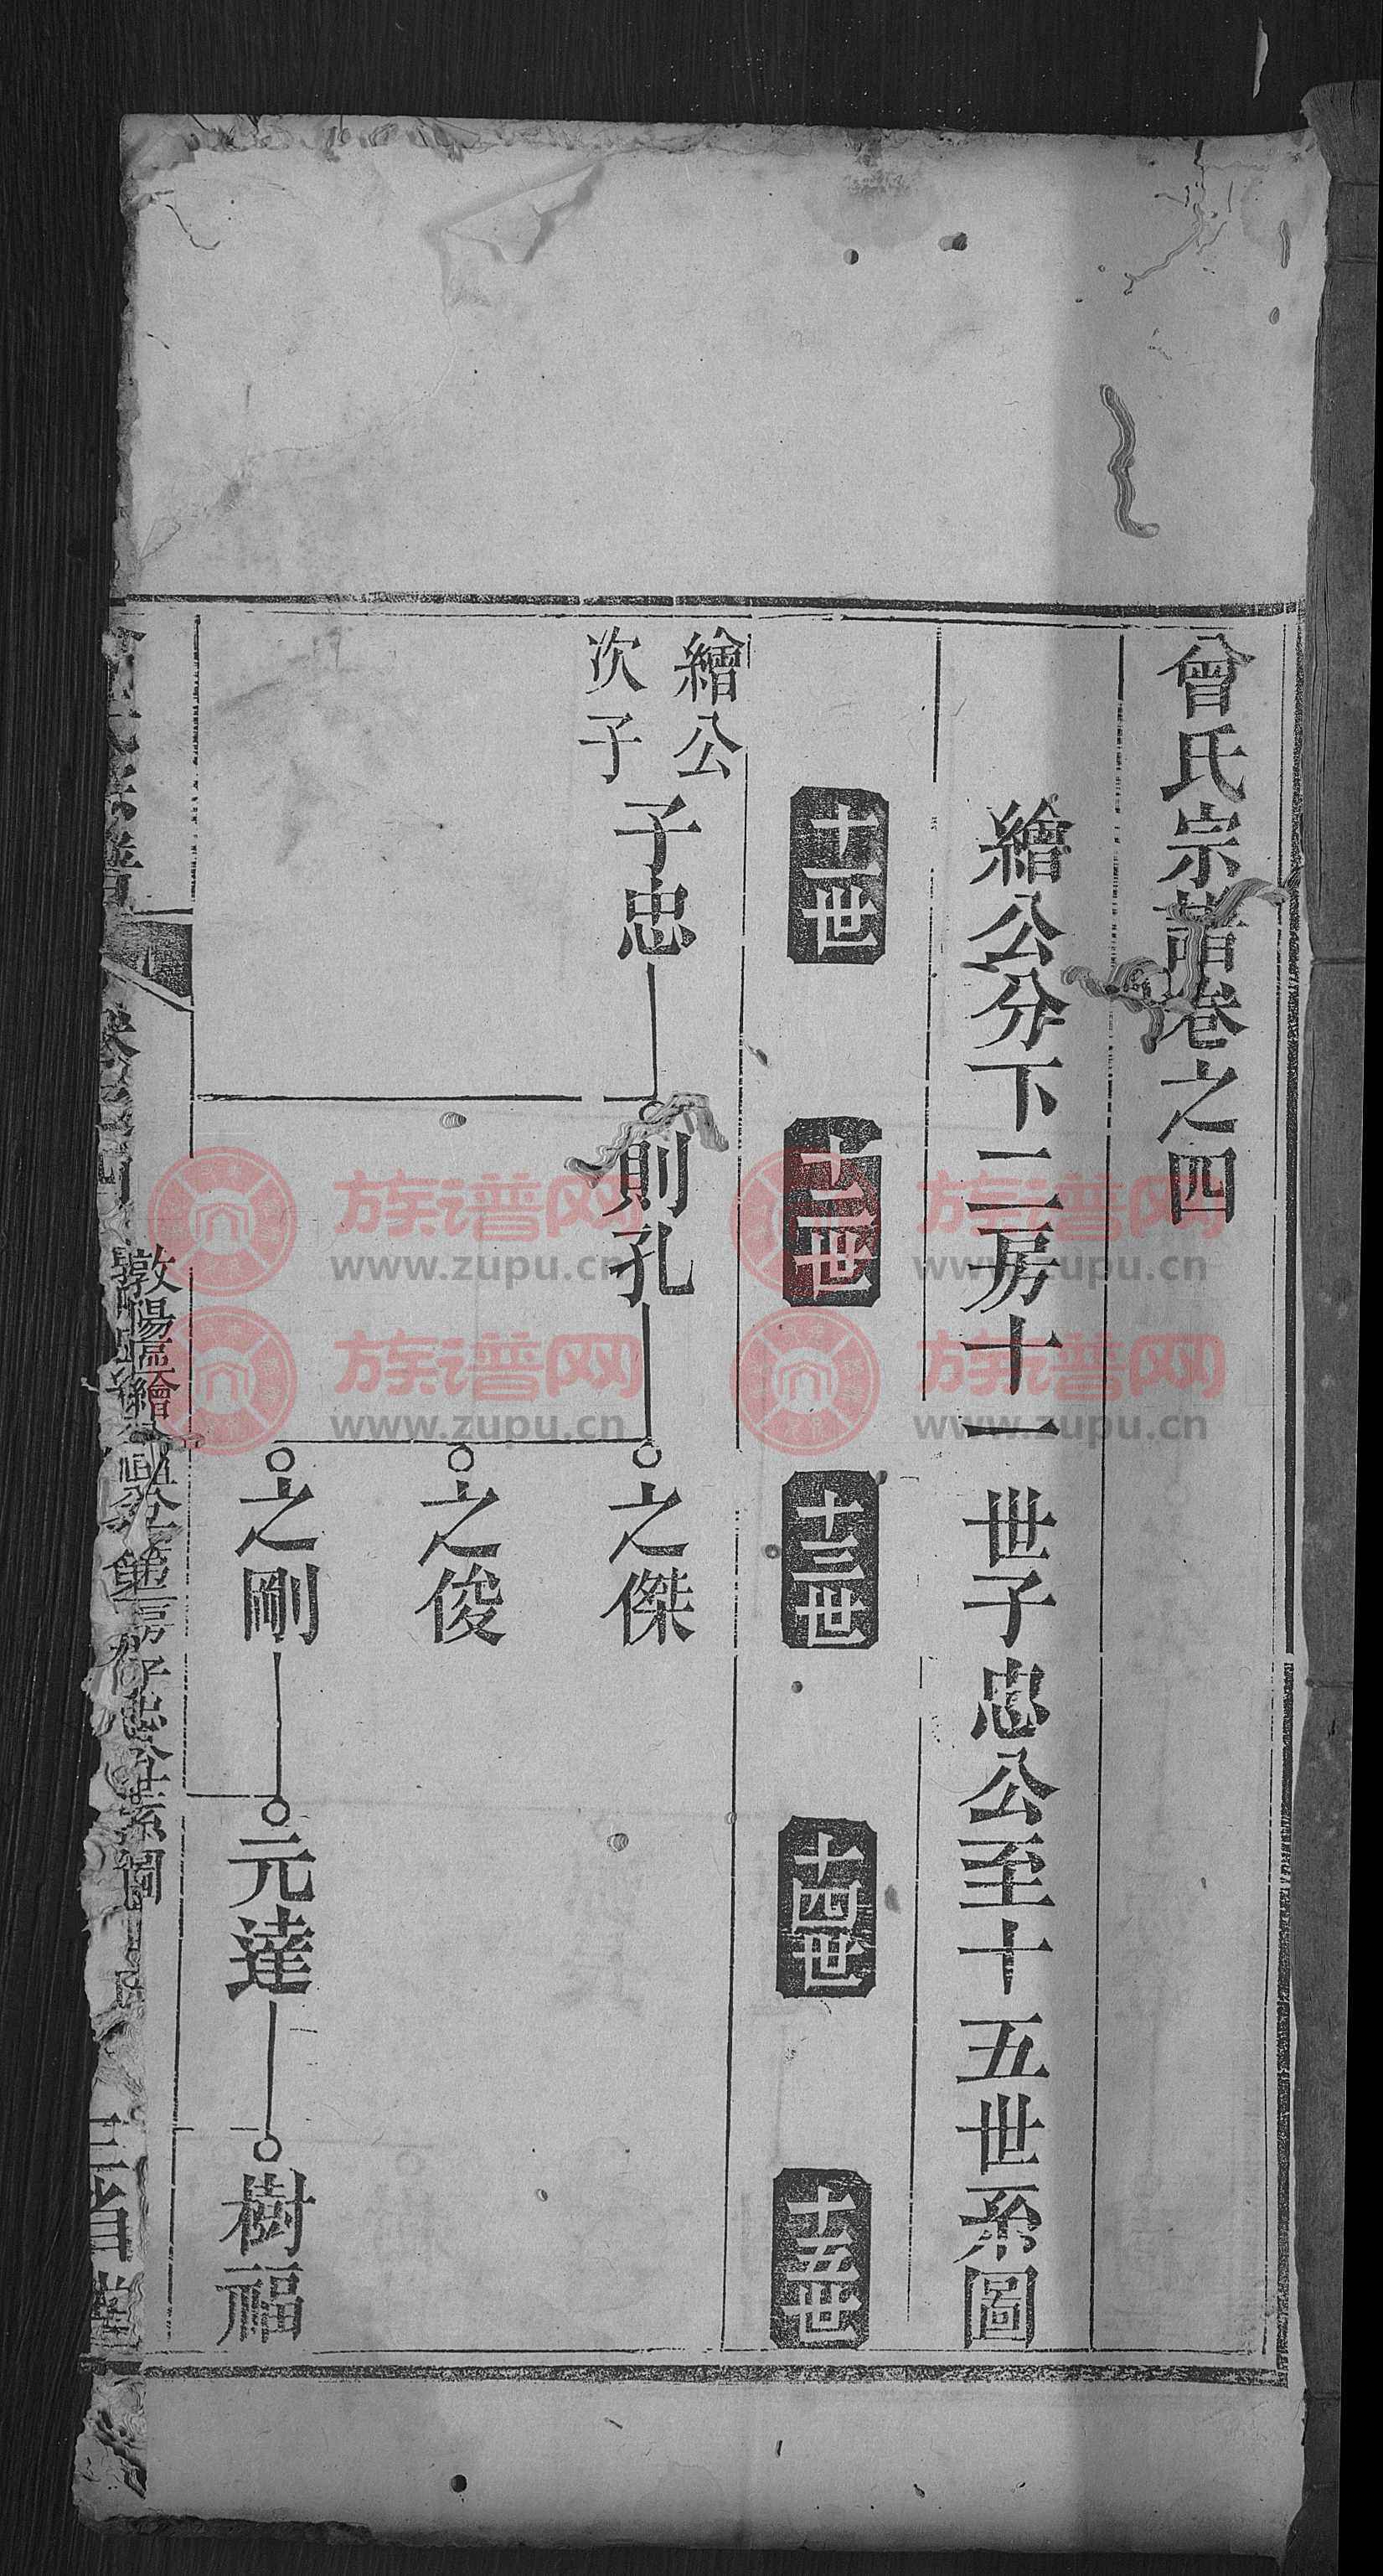 曾氏宗譜卷之四
繪公分下二房十一世子忠公至十五世系圖
十一世
十二世
十三世
十四世
十五世
繪公
次子
子忠
則孔
之傑
之俊
之剛
元達
樹福
三省堂
族谱网
www.zupu.cn
族谱网
www.zupu.cn
族谱网
www.zupu.cn
族谱网
www.zupu.cn